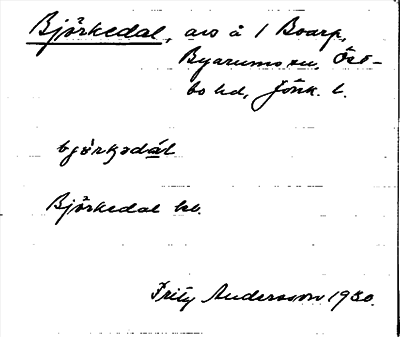 Björkedal, avs å 1 Boarp,
Byarums sn. Öst-
bo hd, Jönk. l.
bjö̀rkedál
Björkedal kb.
Fritz Andersson 1930.